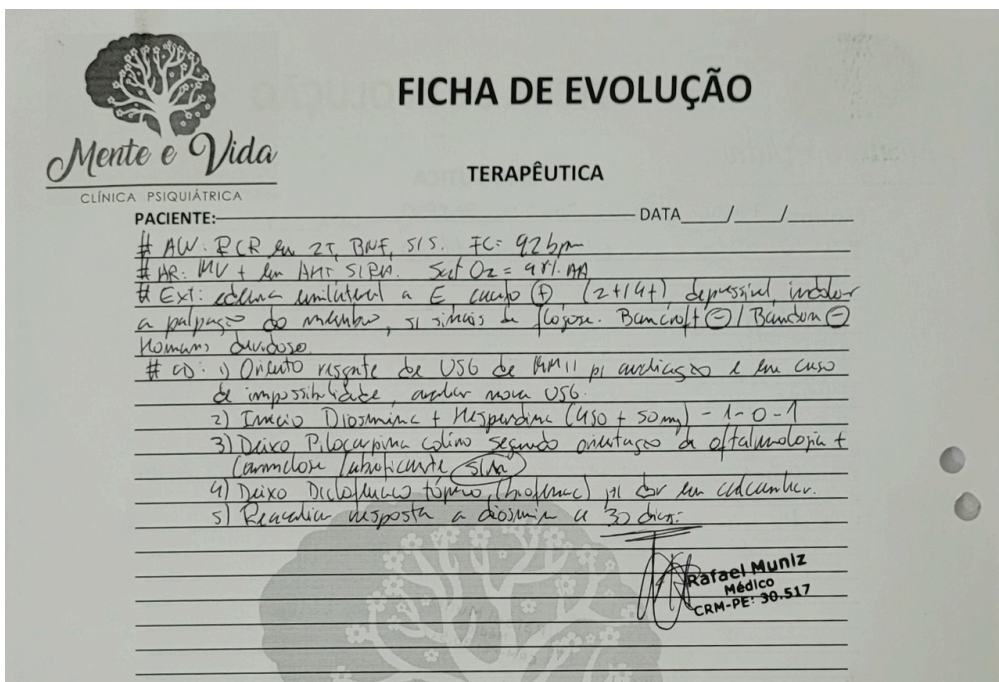 Mente e Vida
CLÍNICA PSIQUIÁTRICA
FICHA DE EVOLUÇÃO
TERAPÊUTICA
PACIENTE: DATA / /
# ACV: RCR em 2T, BNF, S/S. FC= 92 bpm
# AR: MV + em AHT S/RA. Sat O2 = 97% AA
# Ext: edema unilateral a E, cacifo (+), (2+/4+), depressível, indolor
a palpação do membro, s/ sinais de flogose. Bancroft (-) / Bandeira (-)
Homans duvidoso.
# CD: 1) Oriento resgate de USG de MMII p/ avaliação e em caso
de impossibilidade, avaliar nova USG.
2) Inicio Diosmina + Hesperidina (450 + 50mg) - 1-0-1
3) Deixo Pilocarpina colírio segundo orientação da oftalmologia +
Carmelose lubrificante S/N
4) Deixo Diclofenaco tópico (biofenac) p/ dor em calcanhar.
5) Reavaliar resposta a diosmin a 30 dias.
Rafael Muniz
Médico
CRM-PE: 30.517